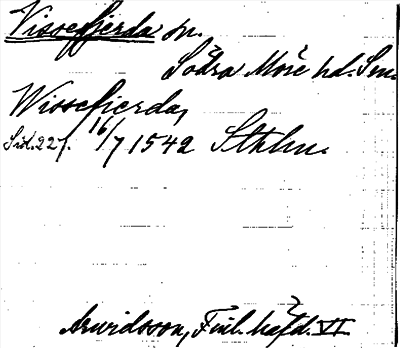 Vissefjerda sn.
Södra Möre hd. Sm.
Wissefierda,
Sid. 227. 16/7 1542 Sthlm.
Arwidsson, Finl. häfd. VI